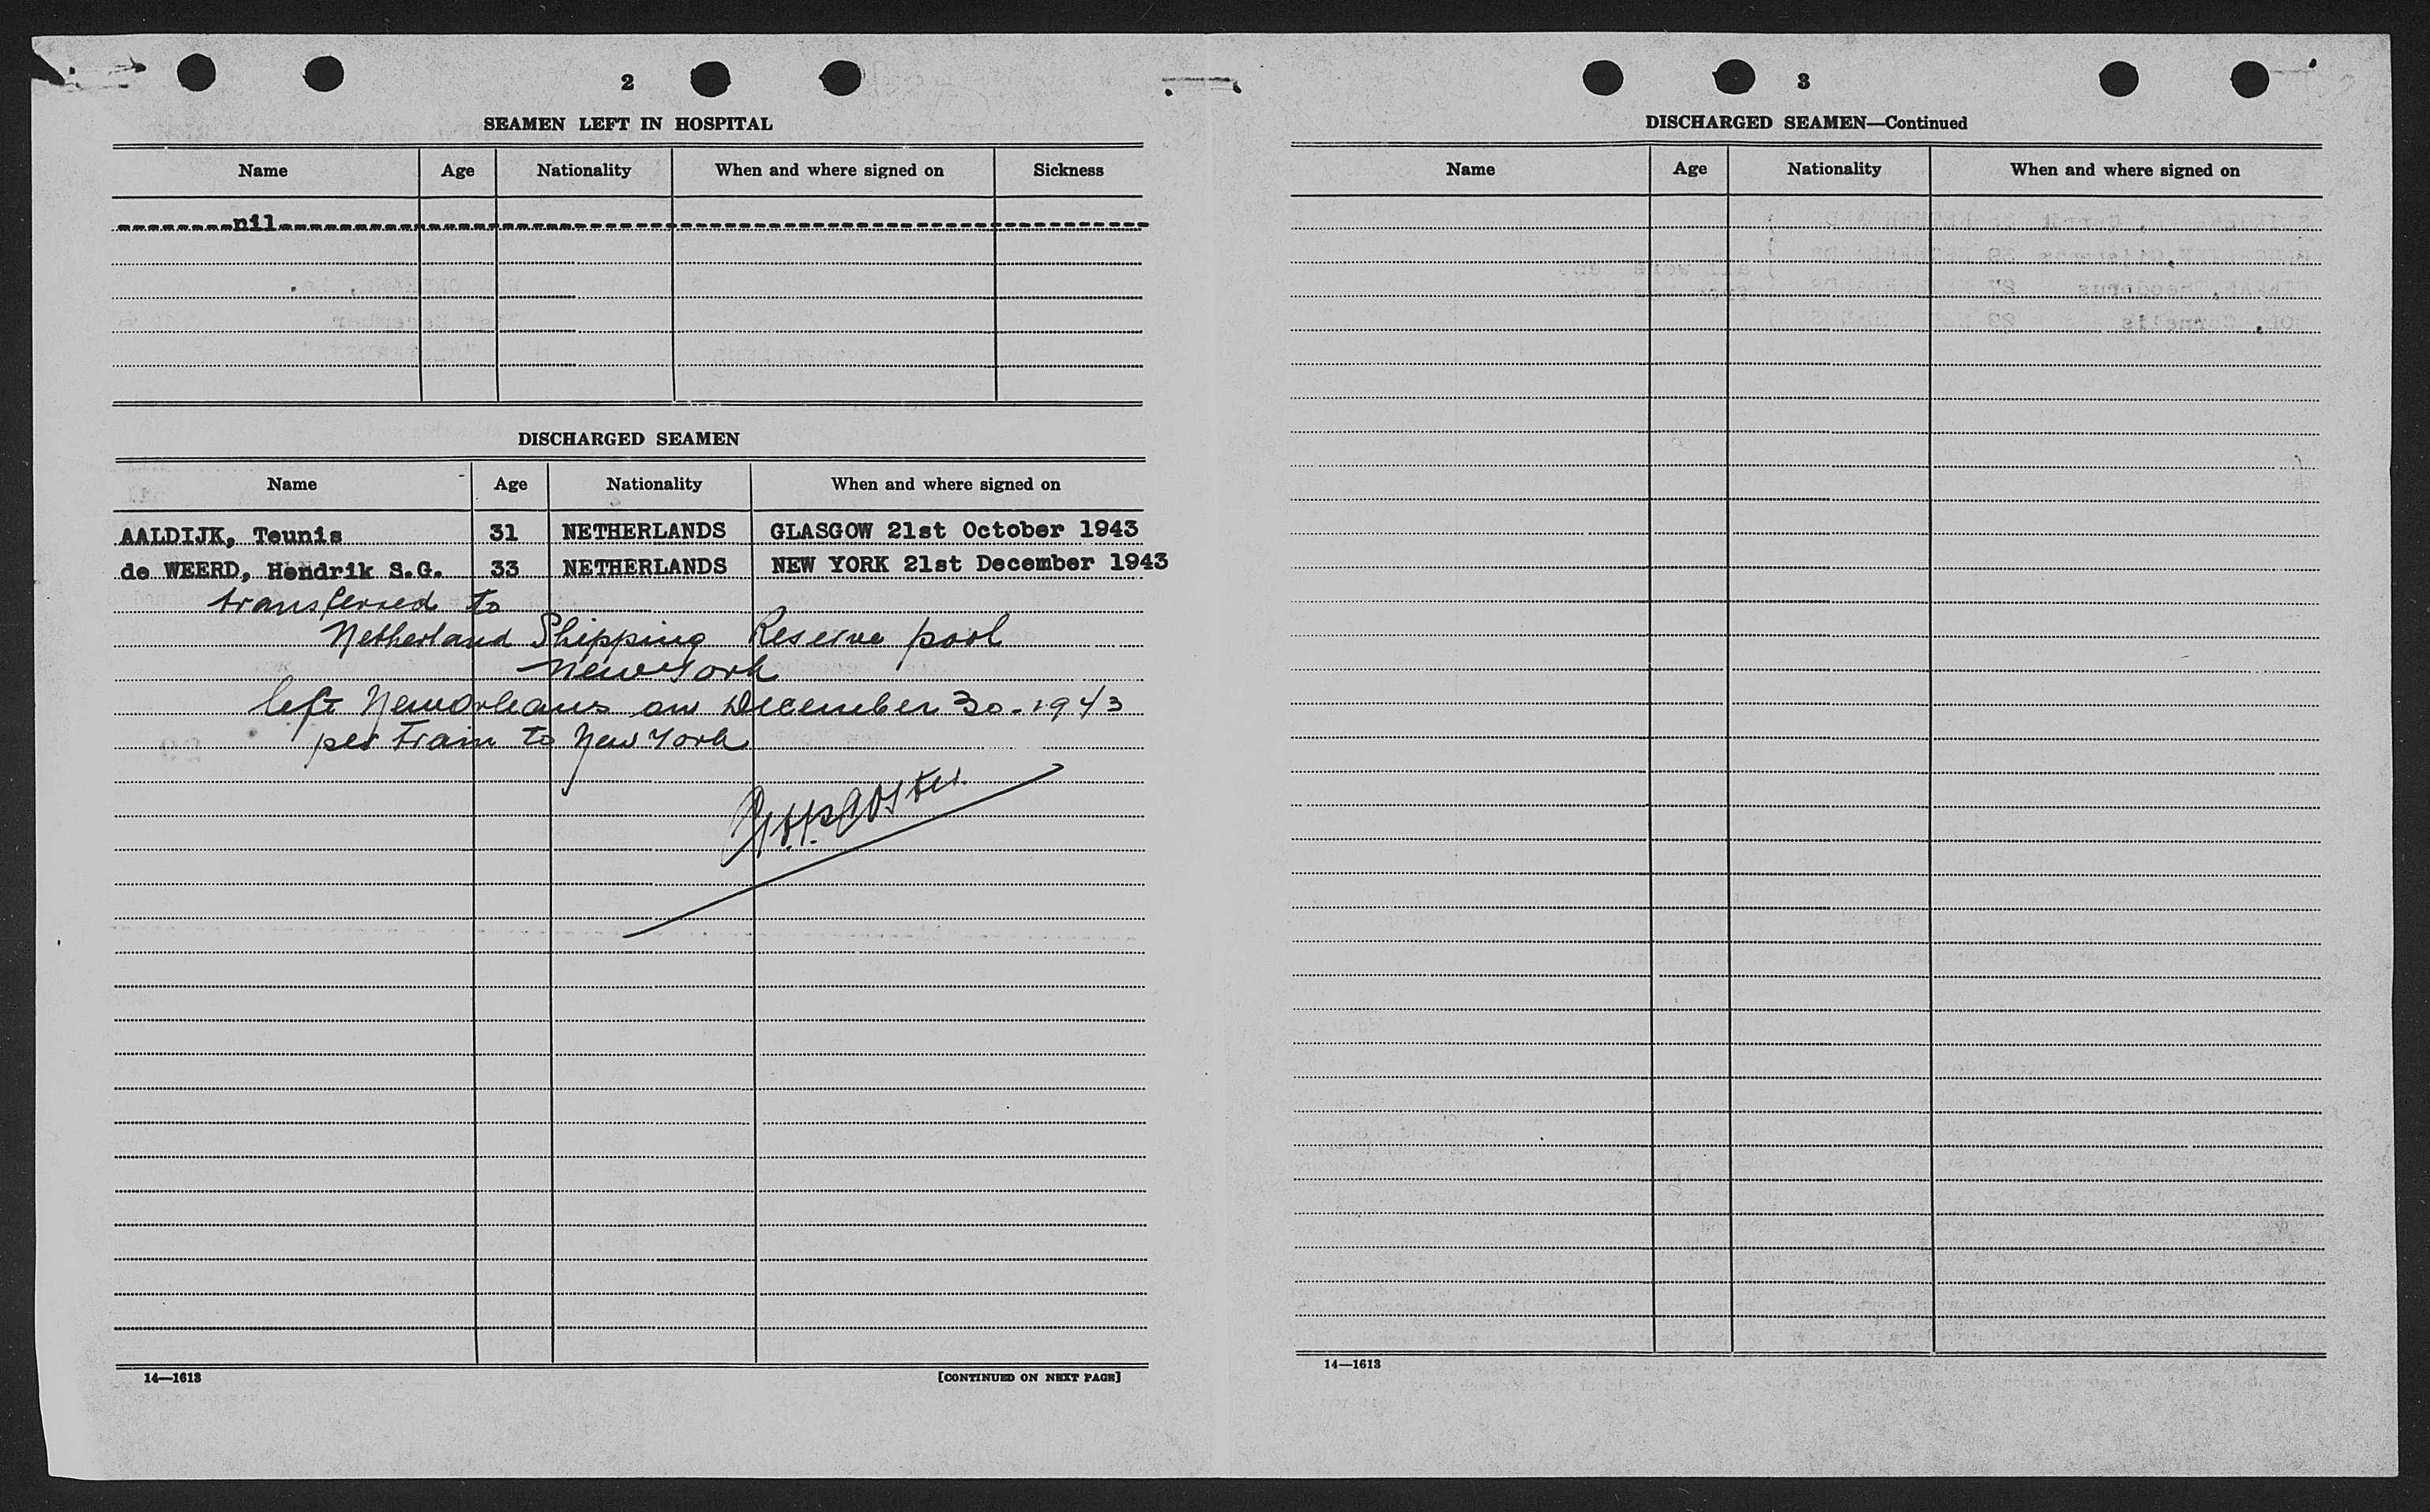 2
SEAMEN LEFT IN HOSPITAL
Name Age Nationality When and where signed on Sickness
nil
DISCHARGED SEAMEN
Name Age Nationality When and where signed on
AALDIJK, Teunis 31 NETHERLANDS GLASGOW 21st October 1943
de WEERD, Hendrik S.G. 33 NETHERLANDS NEW YORK 21st December 1943
transferred to
Netherland Shipping Reserve pool
New York
left New Orleans on December 30-1943
per train to New York
14—1613
[CONTINUED ON NEXT PAGE]
3
DISCHARGED SEAMEN—Continued
Name Age Nationality When and where signed on
14—1613